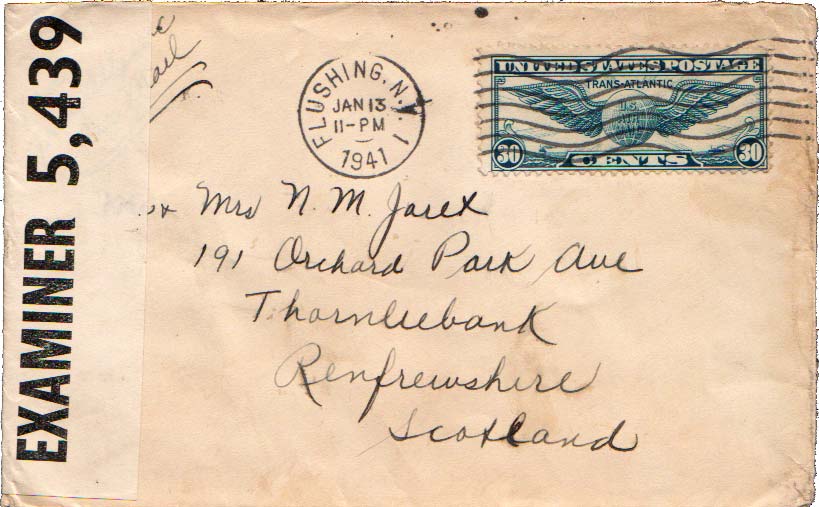 EXAMINER 5,439
ail
FLUSHING, N.Y. 1
JAN 13
11-PM
1941
UNITED STATES POSTAGE
TRANS-ATLANTIC
U.S.
30 CENTS 30
Mrs N. M. Jarex
191 Orchard Park Ave
Thornliebank
Renfrewshire
Scotland